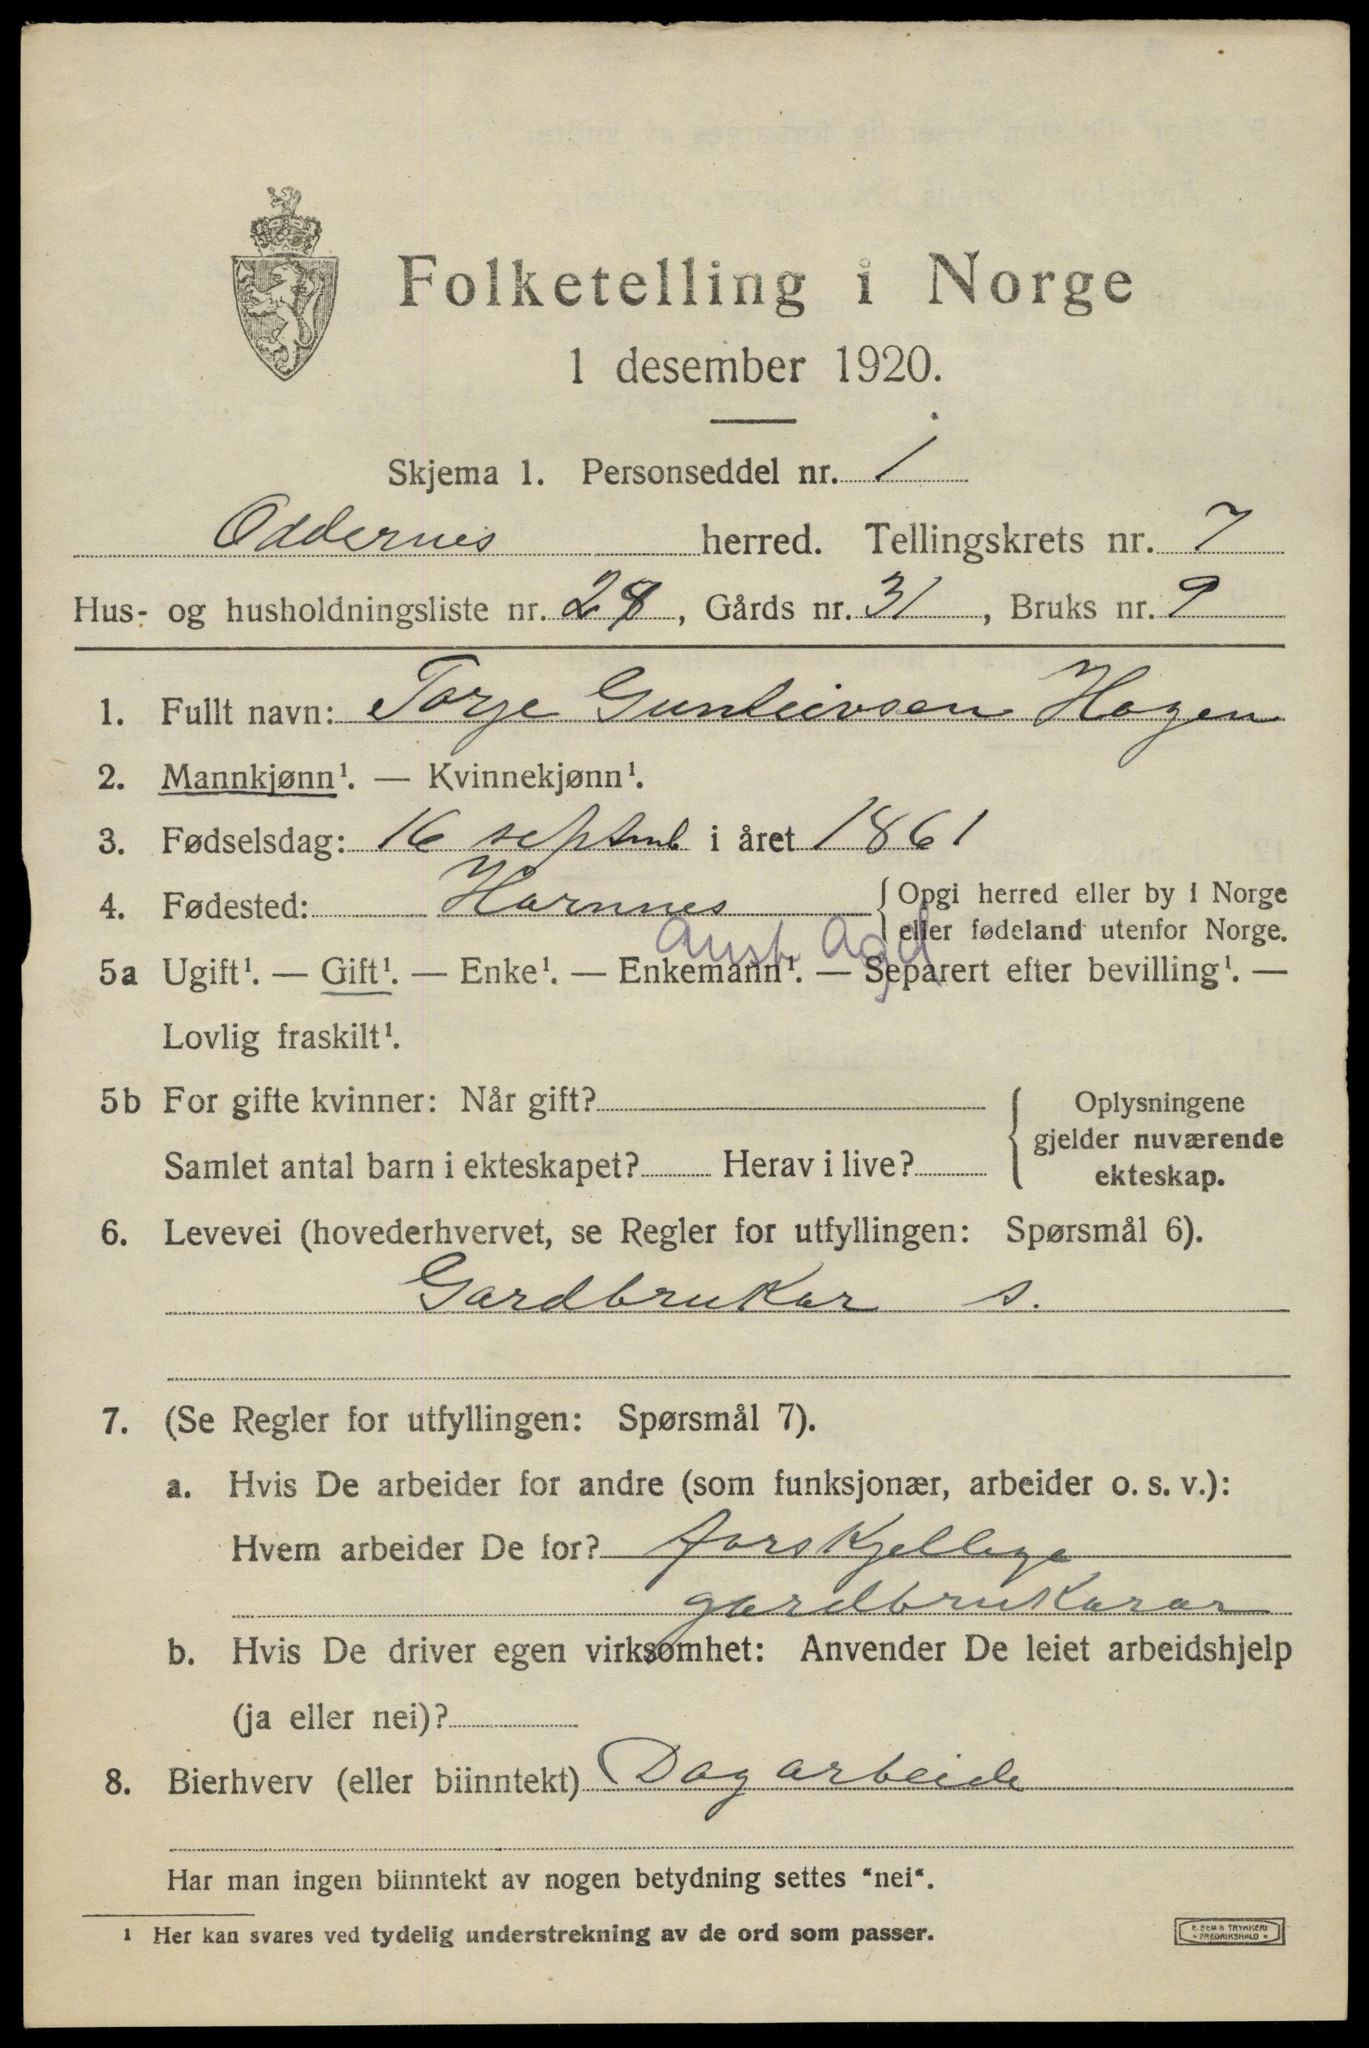 Folketelling i Norge
1 desember 1920.
Skjema 1. Personseddel nr. 1
Oddernes herred. Tellingskrets nr. 7
Hus- og husholdningsliste nr. 28, Gårds nr. 31, Bruks nr. 9
1. Fullt navn: Torje Gunleivsen Hagen
2. Mannkjønn¹. — Kvinnekjønn¹.
3. Fødselsdag: 16 septemb i året 1861
4. Fødested: Hornnes { Opgi herred eller by i Norge
eller fødeland utenfor Norge.
Aust Agd
5a Ugift¹. — Gift¹. — Enke¹. — Enkemann¹. — Separert efter bevilling¹. —
Lovlig fraskilt¹.
5b For gifte kvinner: Når gift? { Oplysningene
gjelder nuværende
Samlet antal barn i ekteskapet? Herav i live? ekteskap.
6. Levevei (hovederhvervet, se Regler for utfyllingen: Spørsmål 6).
Gardbrukar s.
7. (Se Regler for utfyllingen: Spørsmål 7).
a. Hvis De arbeider for andre (som funksjonær, arbeider o. s. v.):
Hvem arbeider De for? forskjellige
gardbrukarar
b. Hvis De driver egen virksomhet: Anvender De leiet arbeidshjelp
(ja eller nei)?
8. Bierhverv (eller biinntekt) Dagarbeide
Har man ingen biinntekt av nogen betydning settes "nei".
¹ Her kan svares ved tydelig understrekning av de ord som passer.
E. SEM'S TRYKKERI
FREDRIKSHALD